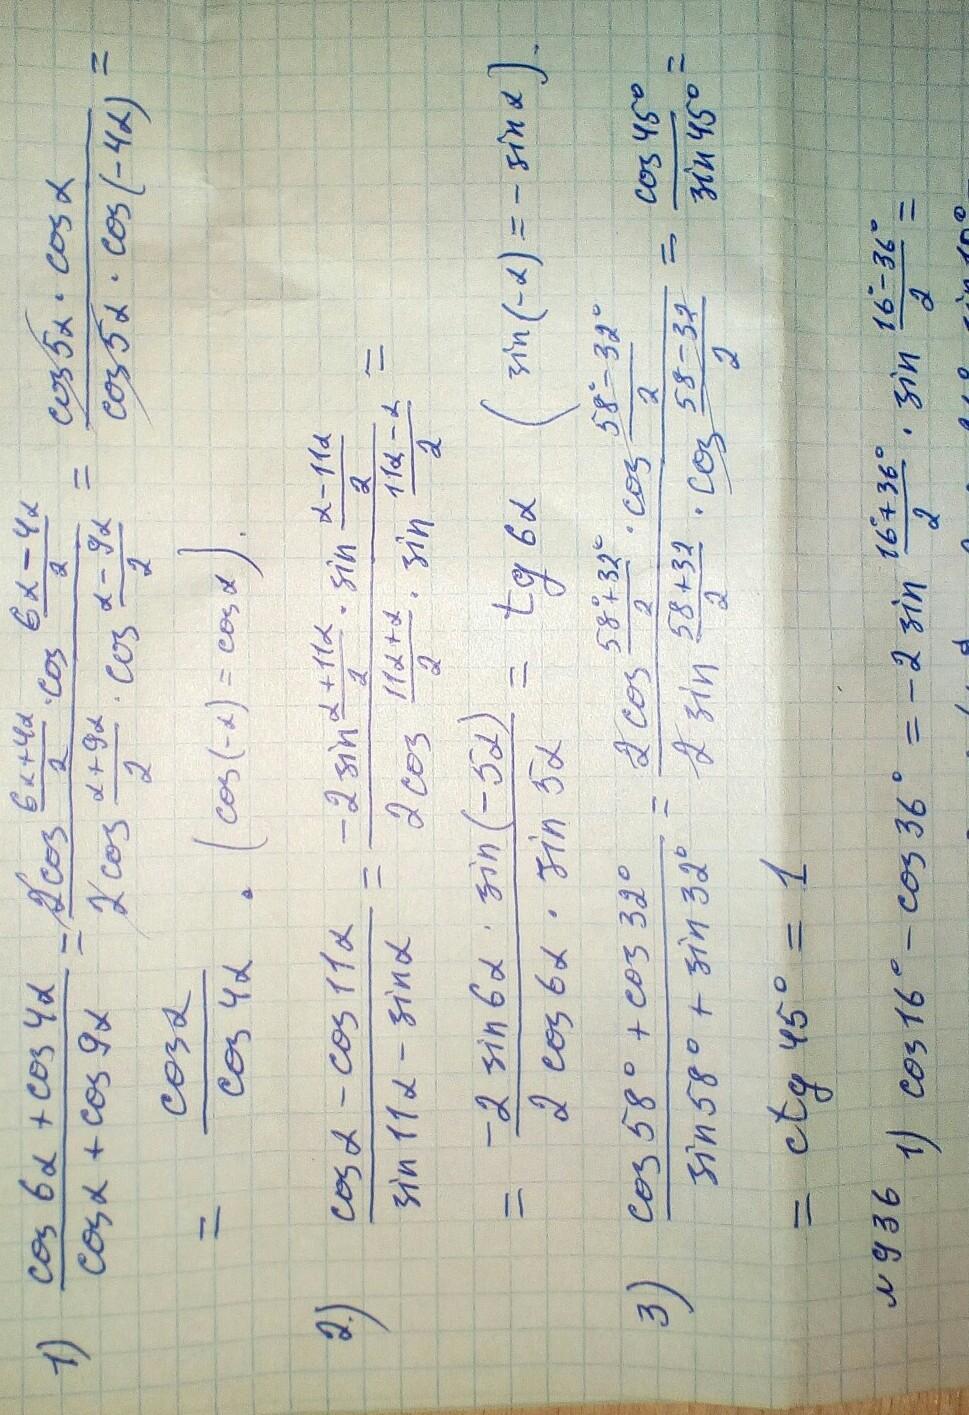 1) (cos 6α + cos 4α)/(cos α + cos 9α) = (2 cos (6α+4α)/2 · cos (6α-4α)/2)/(2 cos (α+9α)/2 · cos (α-9α)/2) = (cos 5α · cos α)/(cos 5α · cos(-4α)) =
= cos α/cos 4α . (cos(-α) = cos α).
2) (cos α - cos 11α)/(sin 11α - sin α) = (-2 sin (α+11α)/2 · sin (α-11α)/2)/(2 cos (11α+α)/2 · sin (11α-α)/2) =
= (-2 sin 6α · sin(-5α))/(2 cos 6α · sin 5α) = tg 6α (sin(-α) = - sin α).
3) (cos 58° + cos 32°)/(sin 58° + sin 32°) = (2 cos (58°+32°)/2 · cos (58°-32°)/2)/(2 sin (58+32)/2 · cos (58-32)/2) = cos 45°/sin 45° =
= ctg 45° = 1
№936 1) cos 16° - cos 36° = -2 sin (16°+36°)/2 · sin (16°-36°)/2 =